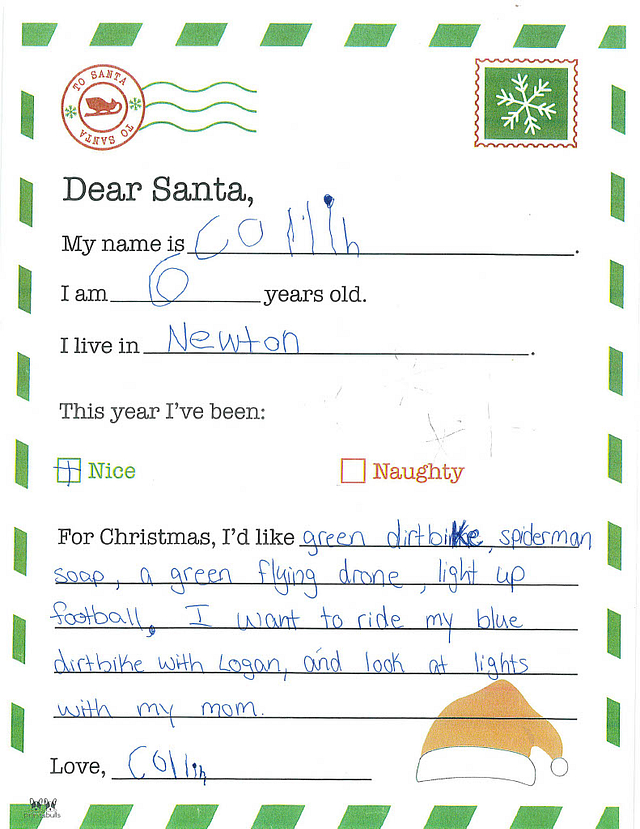 TO SANTA
TO SANTA
Dear Santa,
My name is Collin.
I am 6 years old.
I live in Newton.
This year I've been:
Nice Naughty
For Christmas, I'd like green dirtbike, spiderman
soap, a green flying drone, light up
football, I want to ride my blue
dirtbike with Logan, and look at lights
with my mom.
Love, Collin
printabulls